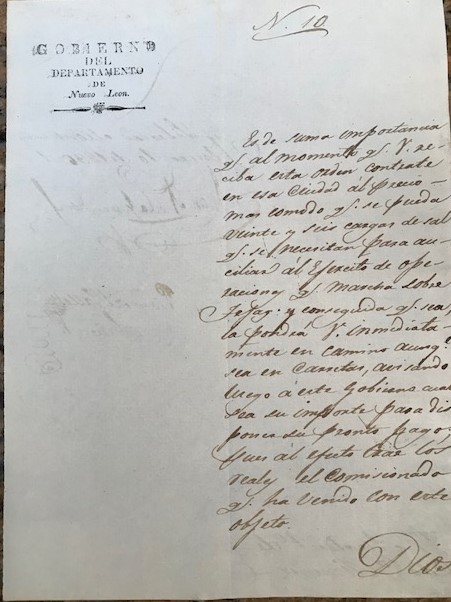 N. 10
GOBIERNO
DEL
DEPARTAMENTO
DE
Nuevo Leon.
Es de suma importancia
qs. al momento qs. V. re-
ciba esta orden contrate
en esa Ciudad ál precio
mas comodo qs. se pueda
veinte y seis cargas de sal
qs. se necesitan para au-
ciliar ál Ejercito de Ope-
raciones qs. marcha sobre
Tejas. y conseguida qs. sea,
la pondrá V. inmediata-
mente en camino aunqe.
sea en carretas, avisando
luego á este Gobierno cual
sea su importe para dis
poner su pronto pago,
pues ál efecto trae los
reales el Comisionado
qs. ha venido con este
objeto.
Dios